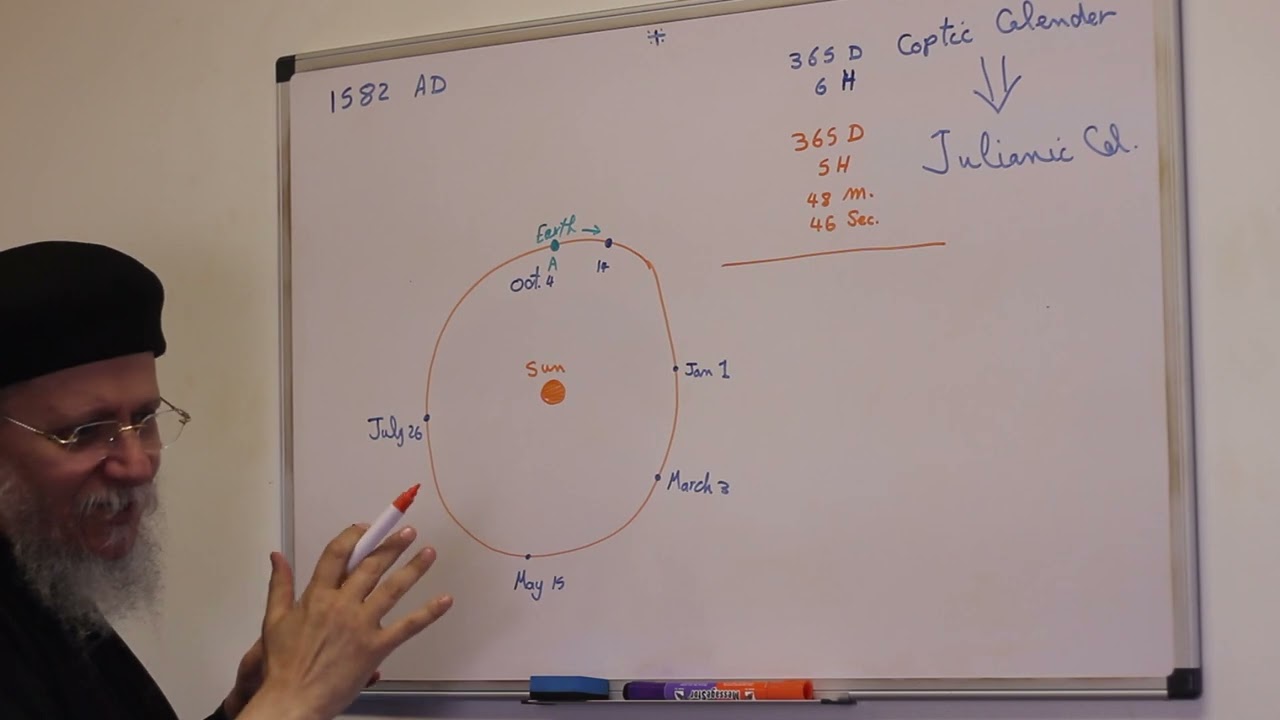 1582 AD
365 D
6 H
Coptic Calender
365 D
5 H
48 m.
46 Sec.
Julianic Cal.
Earth
A
Oct. 4
14
Sun
Jan 1
July 26
March 3
May 15
MessageStor